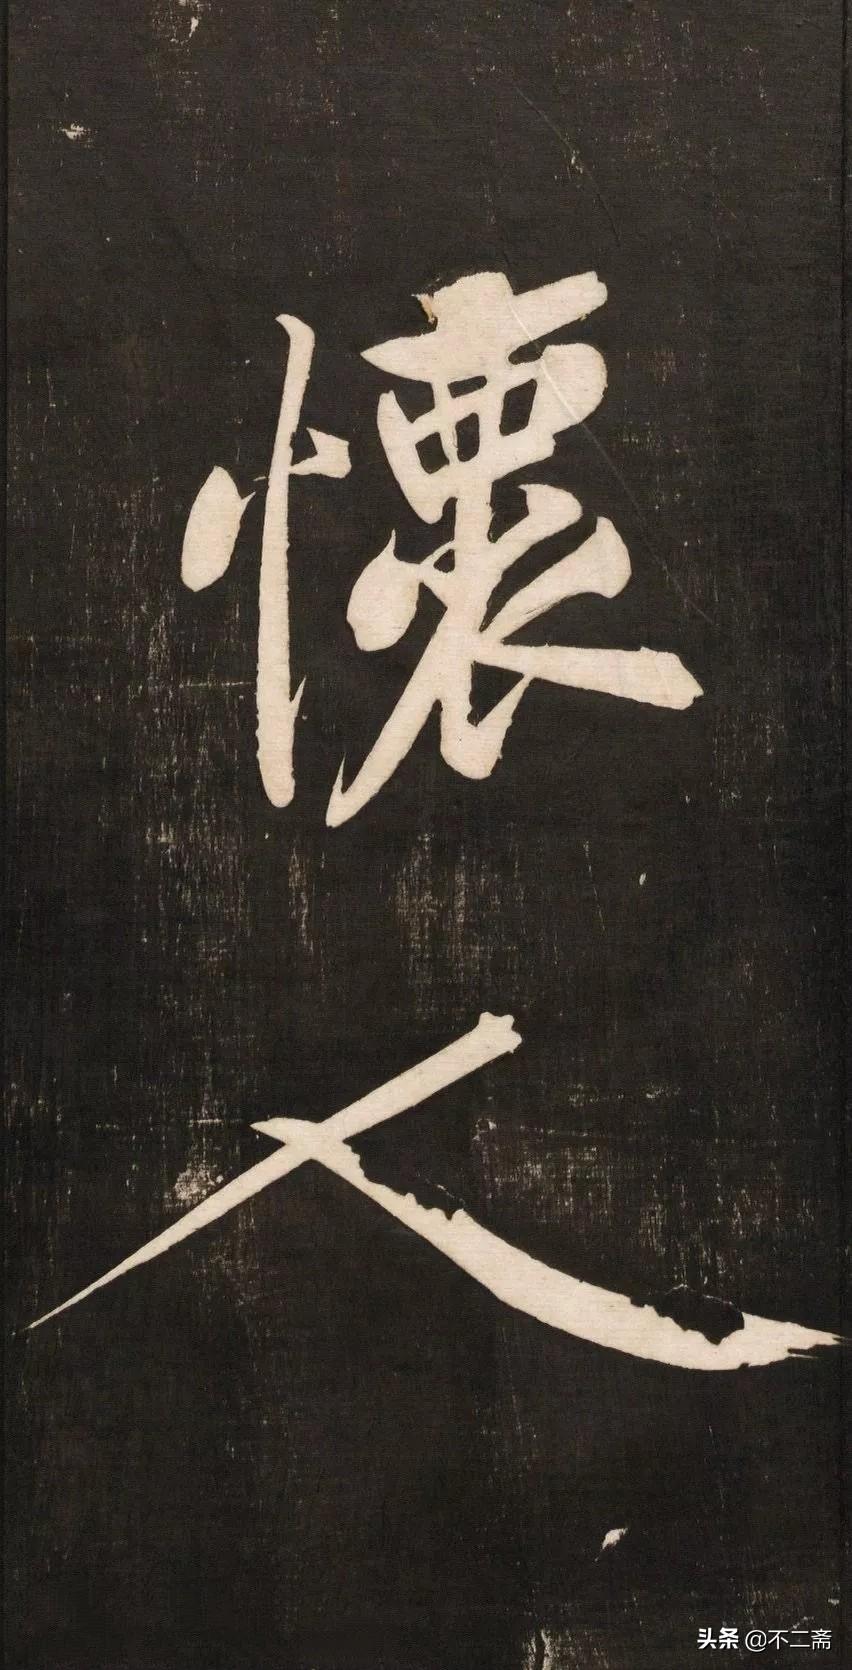 懷
人
头条 @不二斋